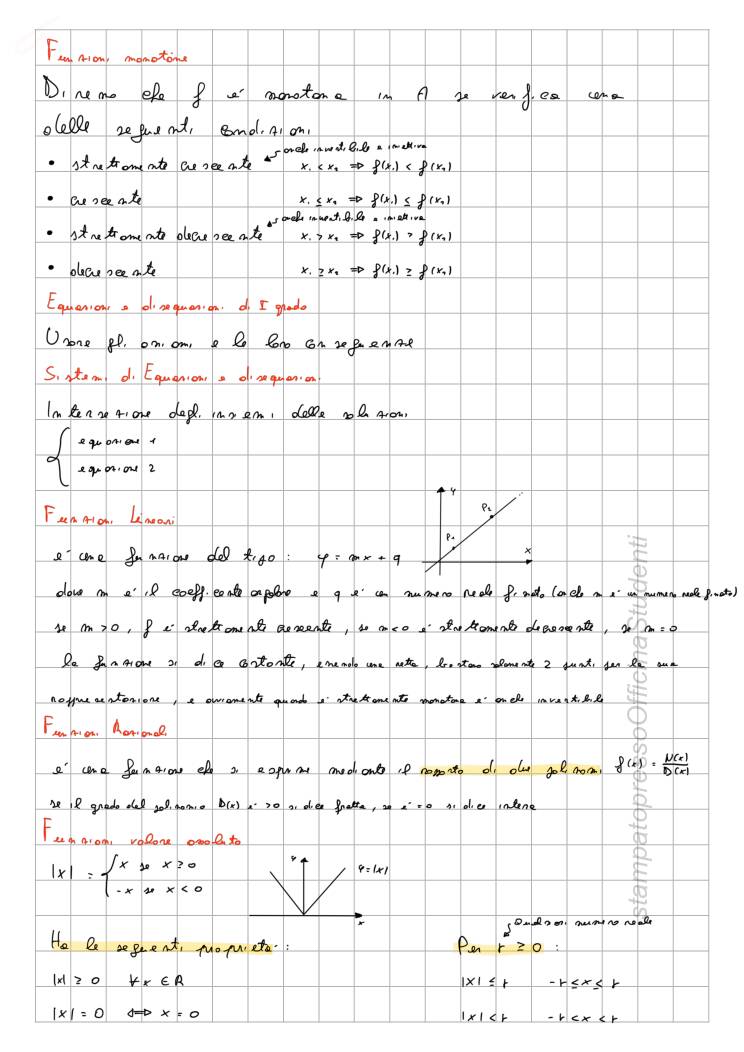 Funzioni monotòne
Diremo che f è monotona in A se verifica una
delle seguenti condizioni
• strettamente crescente x₁ < x₂ ⇒ f(x₁) < f(x₂)
anche invertibile e iniettiva
• crescente x₁ ≤ x₂ ⇒ f(x₁) ≤ f(x₂)
• strettamente decrescente x₁ > x₂ ⇒ f(x₁) > f(x₂)
anche invertibile e iniettiva
• decrescente x₁ ≥ x₂ ⇒ f(x₁) ≥ f(x₂)
Equazioni e disequazioni di I grado
Usare gli assiomi e le loro conseguenze
Sistemi di Equazioni e disequazioni
Intersezione degli insiemi delle soluzioni
equazione 1
equazione 2
y
P₂
P₁
x
Funzioni Lineari
è una funzione del tipo : y = mx + q
dove m è il coefficente angolare e q è un numero reale finato (anche m è un numero reale finato)
se m > 0, f è strettamente crescente, se m < 0 è strettamente decrescente, se m = 0
la funzione si dice costante, essendo una retta, bastano solamente 2 punti per la sua
rappresentazione, e ovviamente quando è strettamente monotona è anche invertibile
Funzioni Razionali
è una funzione che si esprime mediante il rapporto di due polinomi f(x) = N(x)/D(x)
se il grado del polinomio D(x) è > 0 si dice fratta, se è = 0 si dice intera
Funzioni valore assoluto
|x| = { x se x ≥ 0
-x se x < 0
y
y = |x|
x
Ha le seguenti proprietà :
|x| ≥ 0 ∀x ∈ R
|x| = 0 ⇔ x = 0
Qualsiasi numero reale
Per r ≥ 0 :
|x| ≤ r -r ≤ x ≤ r
|x| < r -r < x < r
stampatopressoOfficinaStudenti